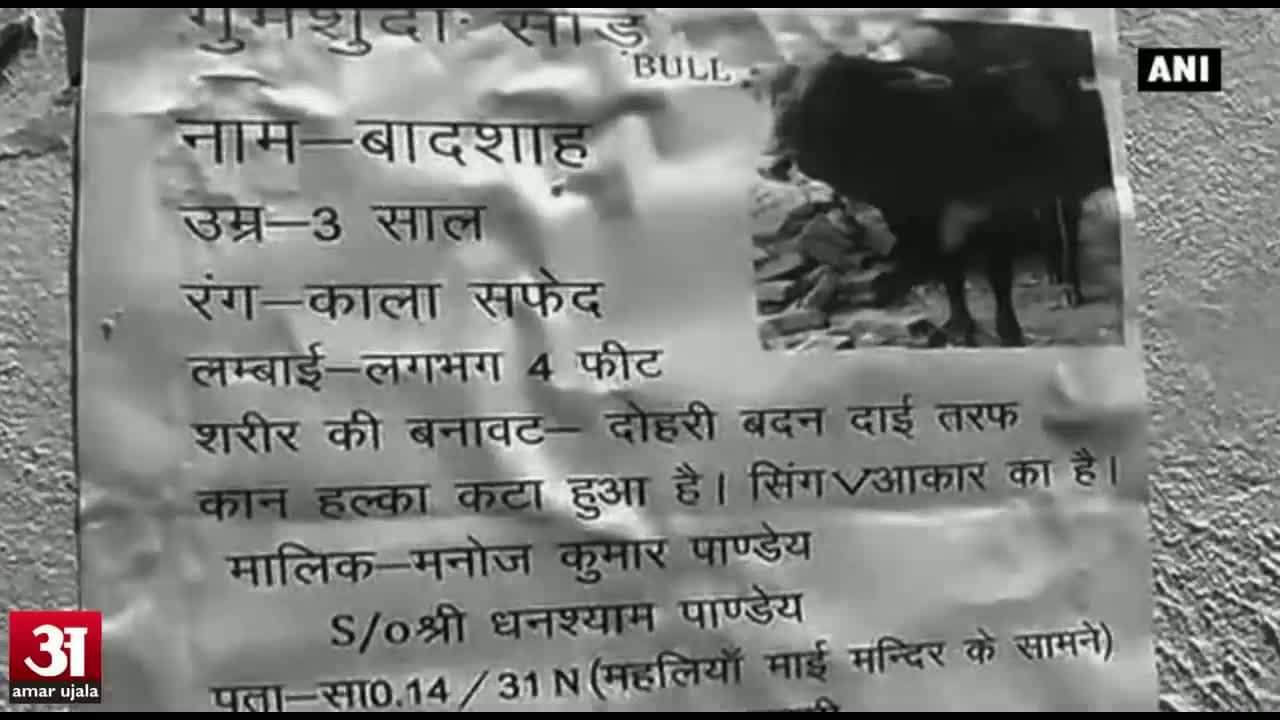 गुमशुदा: साँड़
BULL
ANI
नाम–बादशाह
उम्र–3 साल
रंग–काला सफेद
लम्बाई–लगभग 4 फीट
शरीर की बनावट– दोहरी बदन दाई तरफ
कान हल्का कटा हुआ है। सिंग V आकार का है।
मालिक–मनोज कुमार पाण्डेय
S/o श्री धनश्याम पाण्डेय
पता–सा0.14 / 31 N (महलियाँ माई मन्दिर के सामने)
अ
amar ujala